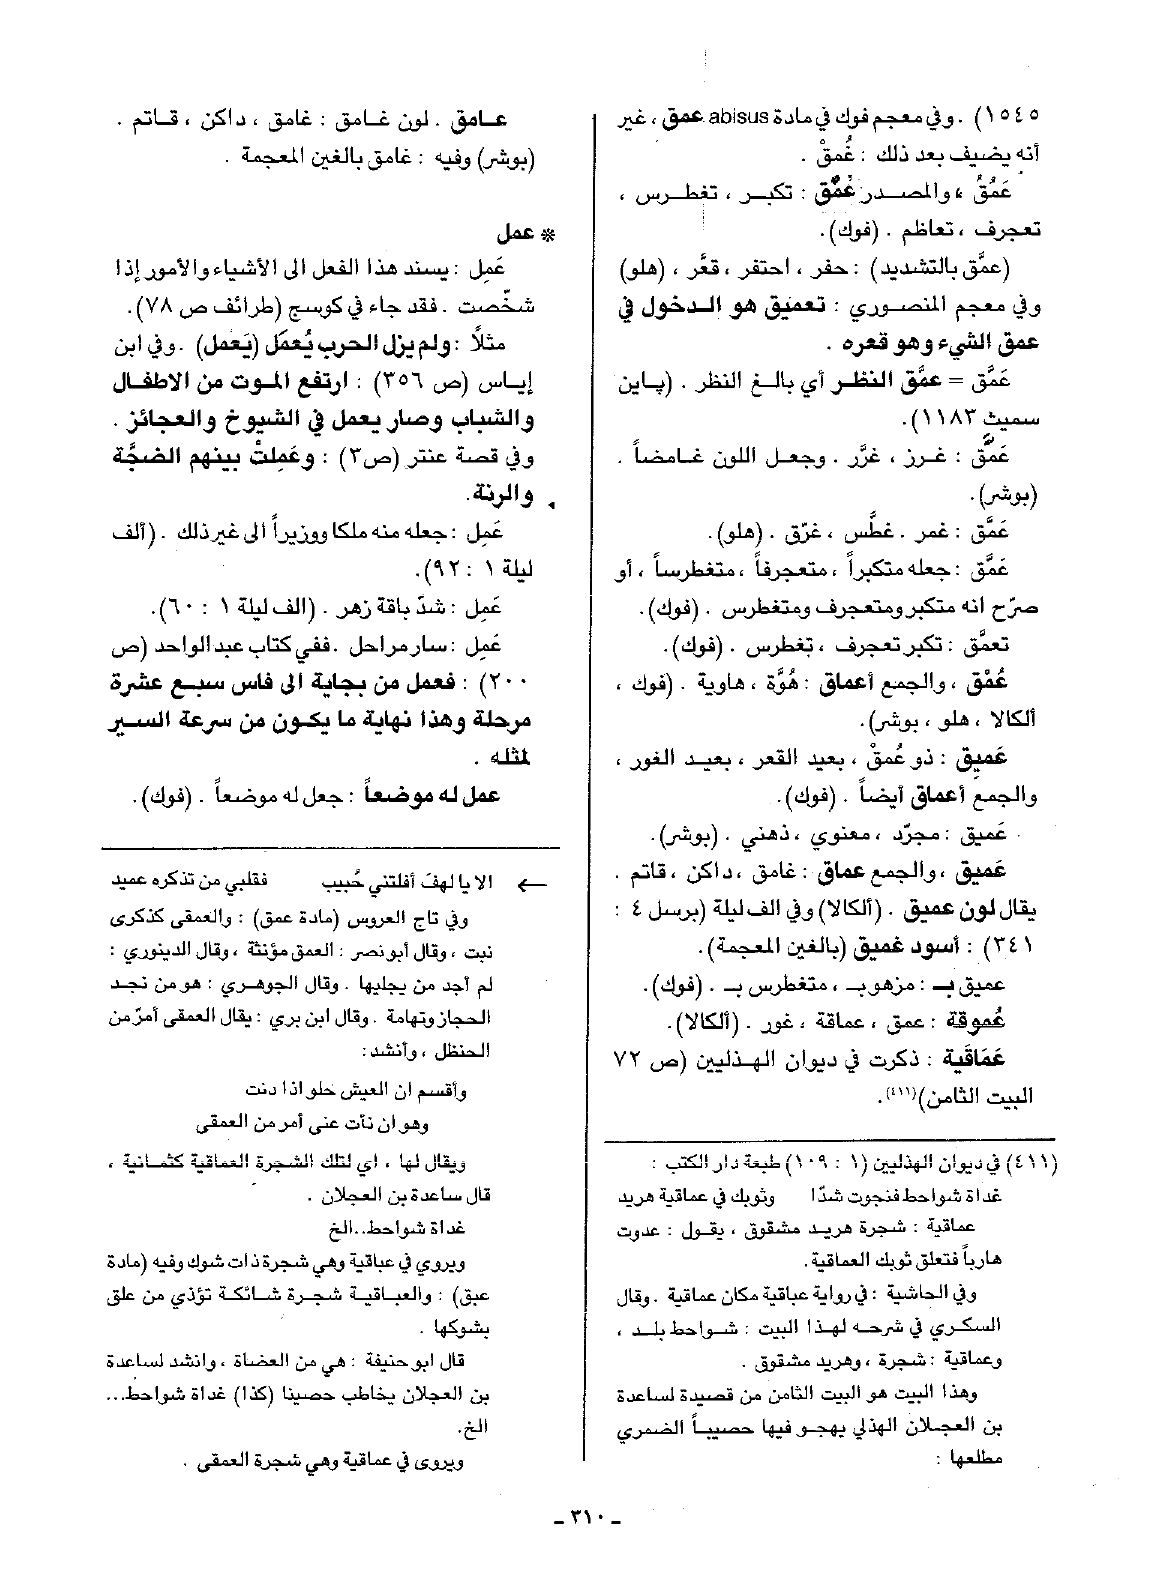 ١٥٤٥) . وفي معجم فوك في مادة abisus عمق ، غير
أنه يضيف بعد ذلك : عُمقْ .
عَمُقُ ، والمصدر عُمُّق : تكبر ، تغطرس ،
تعجرف ، تعاظم . (فوك).
(عمَّق بالتشديد) : حفر ، احتقر ، قعَّر ، (هلو)
وفي معجم المنصوري : تعميق هو الدخول في
عمق الشيء وهو قعره .
عَمَّق = عمَّق النظر أي بالغ النظر . (پاين
سميث ١١٨٣).
عَمَّق : غرز ، غزَّر . وجعل اللون غامضاً .
(بوشر).
عَمَّق : غمر . غطَّس ، غرّق . (هلو).
عَمَّق : جعله متكبراً ، متعجرفاً ، متغطرساً ، أو
صرّح انه متكبر ومتعجرف ومتغطرس . (فوك).
تعمَّق : تكبر تعجرف ، تغطرس . (فوك).
عُمْق ، والجمع أعماق : هُوَّة ، هاوية . (فوك ،
ألكالا ، هلو ، بوشر).
عَميق : ذو عُمقْ ، بعيد القعر ، بعيد الغور ،
والجمع أعماق أيضاً . (فوك).
عَميق : مجرّد ، معنوي ، ذهني . (بوشر).
عَميق ، والجمع عماق : غامق ، داكن ، قاتم .
يقال لون عميق . (ألكالا) وفي الف ليلة (برسل ٤ :
٣٤١) : أسود غميق (بالغين المعجمة).
عميق بـ : مزهو بـ ، متغطرس بـ . (فوك).
عُموقة : عمق ، عماقة ، غور . (ألكالا).
عَمَاقَية : ذكرت في ديوان الهذليين (ص ٧٢
البيت الثامن)(٤١١).
(٤١١) في ديوان الهذليين (١ : ١٠٩) طبعة دار الكتب :
غداة شواحط فنجوت شدّا وثوبك في عماقية هريد
عماقية : شجرة هريد مشقوق ، يقول : عدوت
هارباً فتعلق ثوبك العماقية.
وفي الحاشية : في رواية عباقية مكان عماقية . وقال
السكري في شرحه لهذا البيت : شواحط بلد ،
وعماقية : شجرة ، وهريد مشقوق .
وهذا البيت هو البيت الثامن من قصيدة لساعدة
بن العجلان الهذلي يهجو فيها حصيباً الضمري
مطلعها :
عامق . لون غامق : غامق ، داكن ، قاتم .
(بوشر) وفيه : غامق بالغين المعجمة .
* عمل
عَمِل : يسند هذا الفعل الى الأشياء والأمور إذا
شخّصت . فقد جاء في كوسج (طرائف ص ٧٨).
مثلاً : ولم يزل الحرب يُعمَل (يَعمل) . وفي ابن
إياس (ص ٣٥٦) : ارتفع الموت من الاطفال
والشباب وصار يعمل في الشيوخ والعجائز .
وفي قصة عنتر (ص٣) : وعَمِلتْ بينهم الضجَّة
والرنة.
عَمِل : جعله منه ملكا ووزيراً الى غير ذلك . (ألف
ليلة ١ : ٩٢).
عَمِل : شدّ باقة زهر . (الف ليلة ١ : ٦٠).
عَمِل : سار مراحل . ففي كتاب عبد الواحد (ص
٢٠٠) : فعمل من بجاية الى فاس سبع عشرة
مرحلة وهذا نهاية ما يكون من سرعة السير
لمثله .
عمل له موضعاً : جعل له موضعاً . (فوك).
← الا يا لهفَ أفلتني حُبيب فقلبي من تذكره عميد
وفي تاج العروس (مادة عمق) : والعمقى كذكرى
نبت ، وقال أبو نصر : العمق مؤنثة ، وقال الدينوري :
لم أجد من يجليها . وقال الجوهري : هو من نجد
الحجاز وتهامة . وقال ابن بري : يقال العمقى أمرّ من
الحنظل ، وأنشد :
وأقسم ان العيش حلو اذا دنت
وهو ان نأت عني أمر من العمقى
ويقال لها ، اي لتلك الشجرة العماقية كثمانية ،
قال ساعدة بن العجلان .
غداة شواحط..الخ
ويروي في عباقية وهي شجرة ذات شوك وفيه (مادة
عبق) : والعباقية شجرة شائكة تؤذي من علق
بشوكها .
قال ابو حنيفة : هي من العضاة ، وانشد لساعدة
بن العجلان يخاطب حصينا (كذا) غداة شواحط...
الخ.
ويروى في عماقية وهي شجرة العمقى .
ـ ٣١٠ ـ